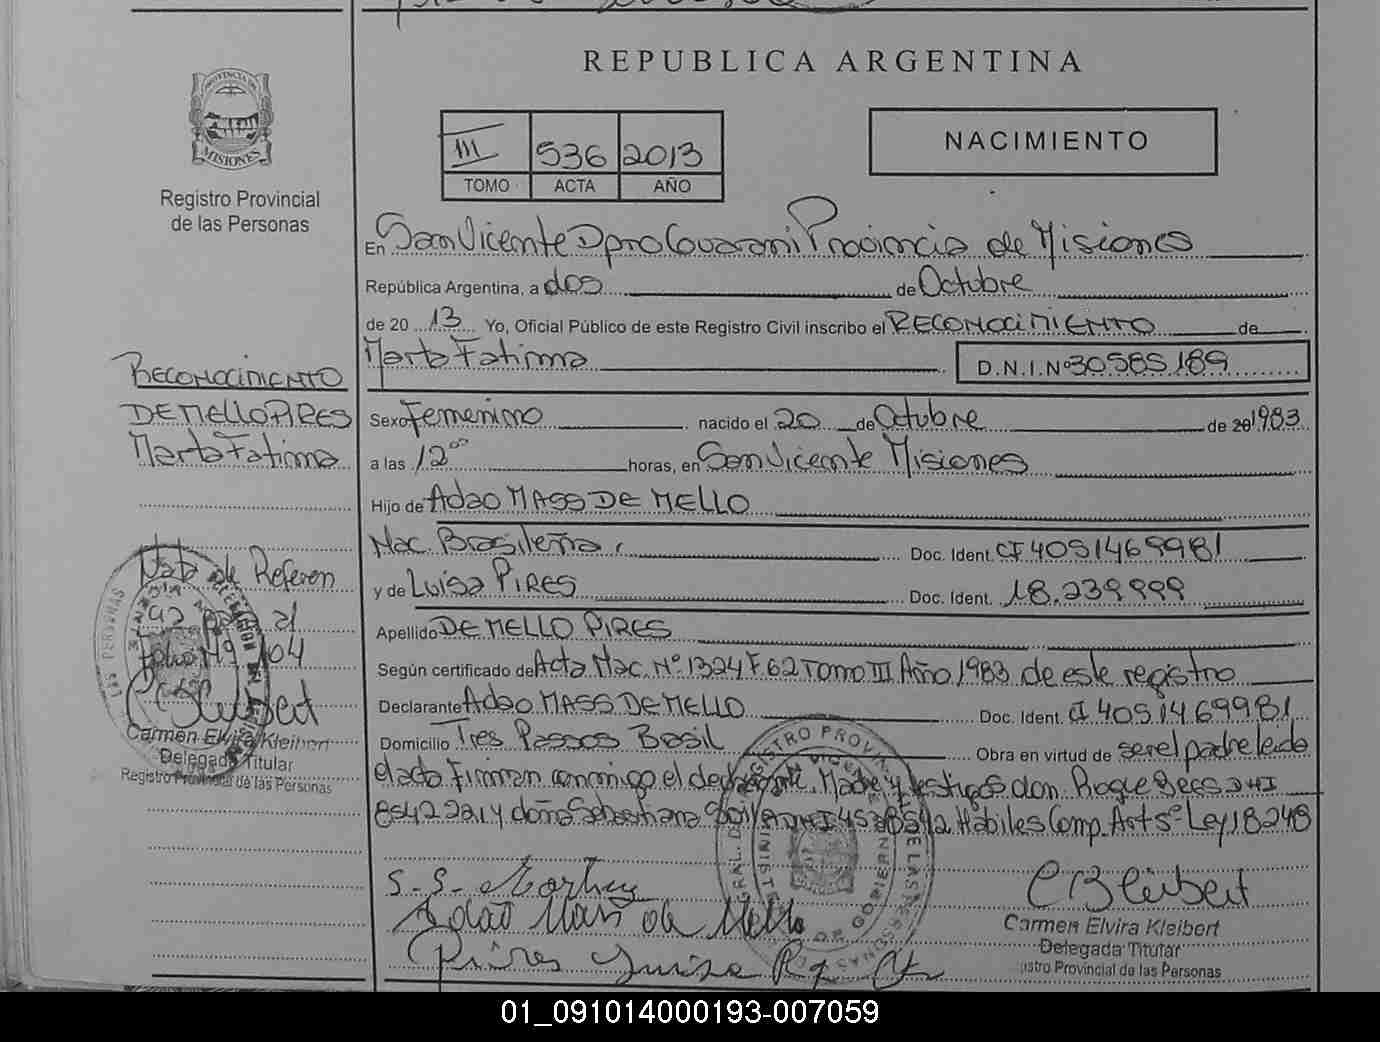 REPUBLICA ARGENTINA
PROVINCIA DE
MISIONES
Registro Provincial
de las Personas
III 536 2013
TOMO ACTA AÑO
NACIMIENTO
En San Vicente Dpto Guarani Provincia de Misiones
República Argentina, a dos de Octubre
de 20 13 Yo, Oficial Público de este Registro Civil inscribo el RECONOCIMIENTO de
Marta Fatima D.N.I.Nº 30585189
RECONOCIMIENTO
DE MELLO PIRES
Marta Fatima
Sexo Femenino nacido el 20 de Octubre de 20 1983
a las 12 00 horas, en San Vicente Misiones
Hijo de Adao MASS DE MELLO
Nac. Brasileña, Doc. Ident. CI 4051469981
y de Luisa PIRES Doc. Ident. 18.239999
Apellido DE MELLO PIRES
Según certificado de Acta Nac. Nº 1324 F.62 Tomo III Año 1983 de este registro
Declarante Adao MASS DE MELLO Doc. Ident. CI 4051469981
Domicilio Tres Passos Brasil Obra en virtud de ser el padre leido
el acta firman conmigo el declarante, Madre y testigos don Roque
y doña Sebastiana Habiles Comp. Art 5º Ley 18248
Nota de Referen
21
Folio Nº 104
CBKleibert
Carmen Elvira Kleibert
Delegada Titular
Registro Provincial de las Personas
S. S.
Adão Mass de Mello
Pires Luisa
CBKleibert
Carmen Elvira Kleibert
Delegada Titular
istro Provincial de las Personas
01_091014000193-007059